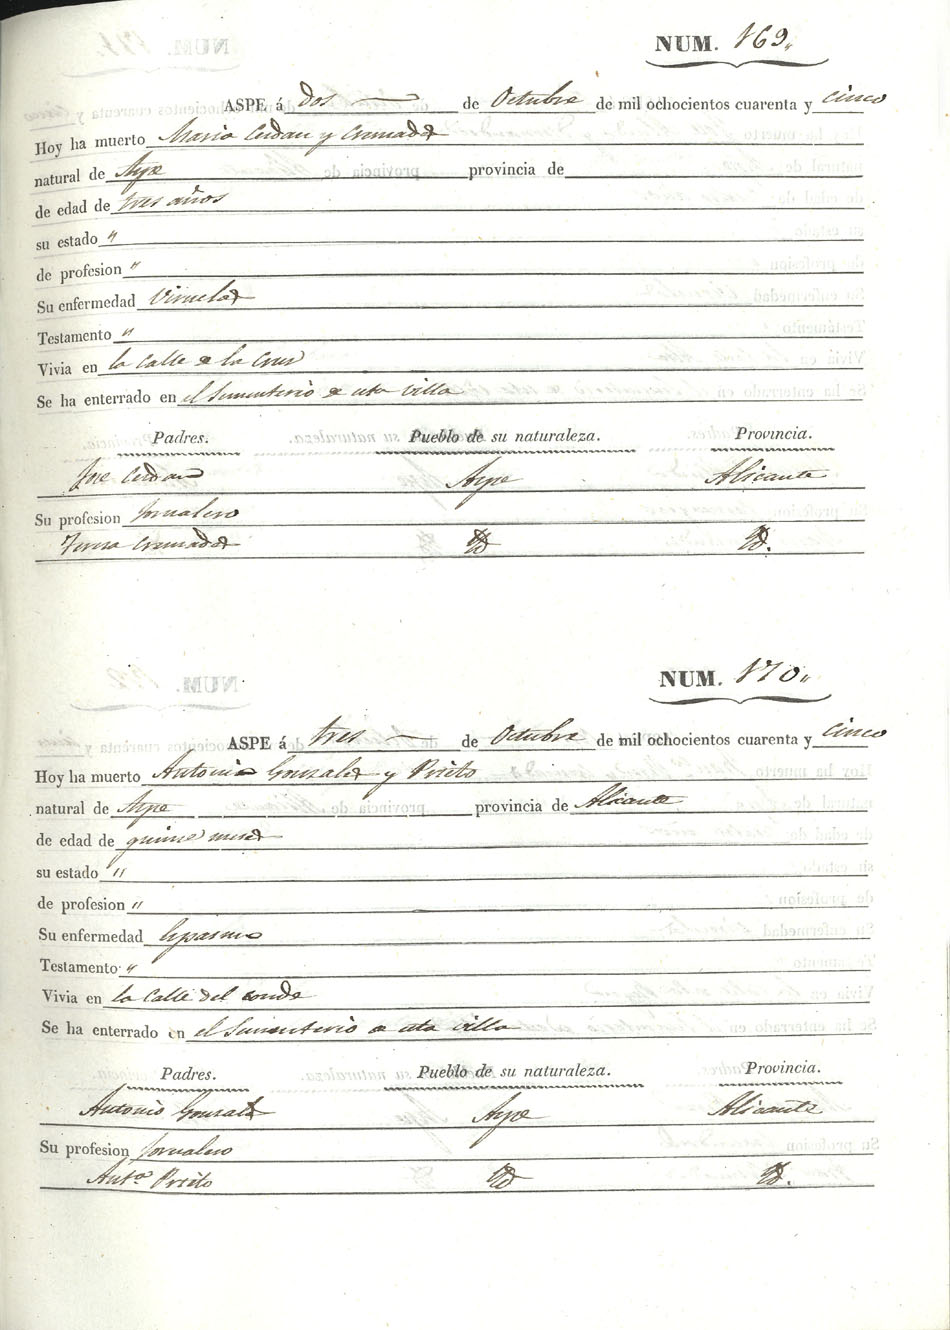 NUM. 169.
ASPE á dos de Octubre de mil ochocientos cuarenta y cinco
Hoy ha muerto Maria Cerdan y Cremades
natural de Aspe provincia de
de edad de tres años
su estado "
de profesion "
Su enfermedad Viruelas
Testamento "
Vivia en la Calle de la Crus
Se ha enterrado en el Sementerio de esta villa
Padres. Pueblo de su naturaleza. Provincia.
Jose Cerdan Aspe Alicante
Su profesion Jornalero
Cremades Yd Yd.
NUM. 170.
ASPE á tres de Octubre de mil ochocientos cuarenta y cinco
Hoy ha muerto Antonio Gonzales y Prieto
natural de Aspe provincia de Alicante
de edad de quinse meses
su estado "
de profesion "
Su enfermedad Espasmo
Testamento "
Vivia en la Calle del conde
Se ha enterrado en el Sementerio de esta villa
Padres. Pueblo de su naturaleza. Provincia.
Antonio Gonzales Aspe Alicante
Su profesion Jornalero
Anta. Prieto Yd Yd.